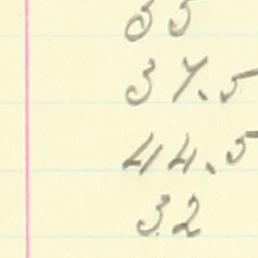 35
37.5
44.5
32